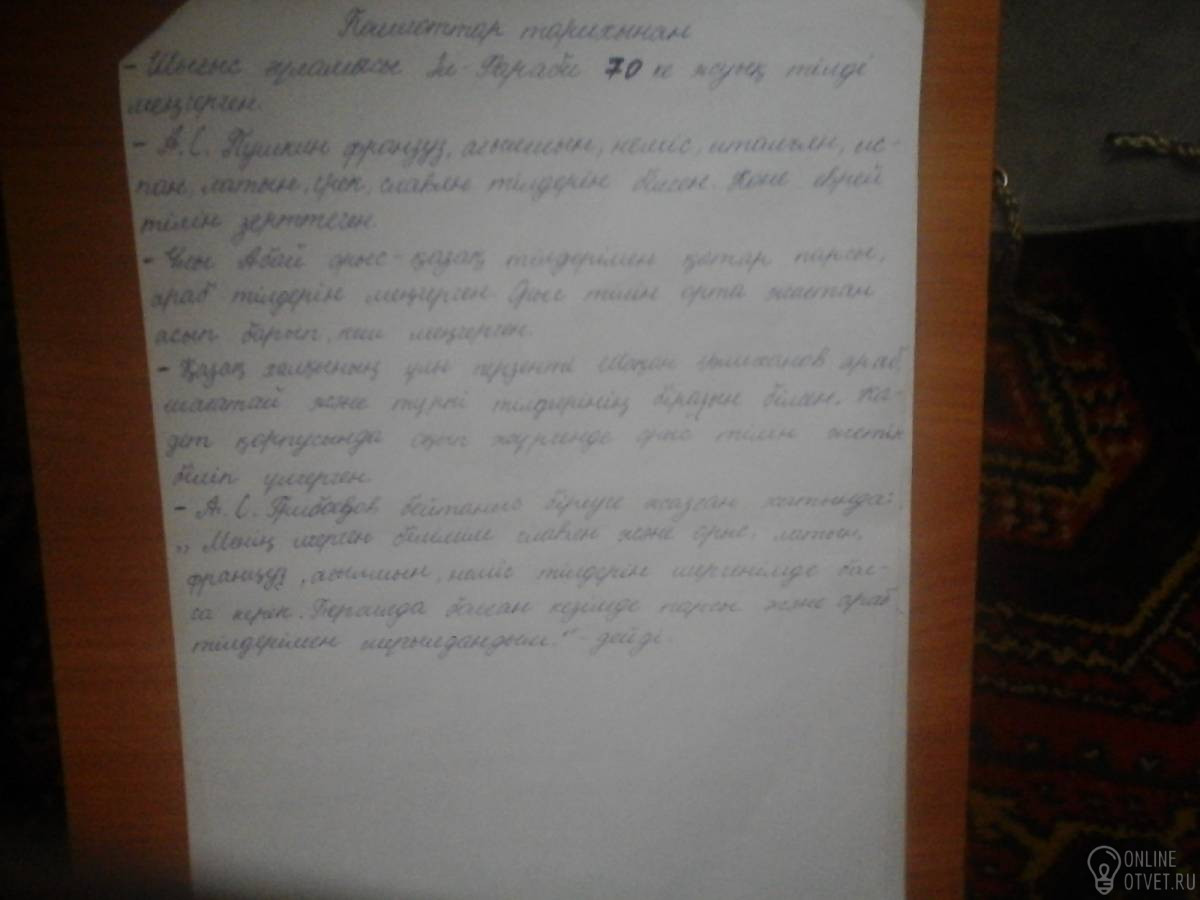 Полиглоттар тарихынан
- Шығыс ғұламасы Әл-Фараби 70 ке жуық тілді
меңгерген.
- А.С. Пушкин француз, ағылшын, неміс, итальян, ис-
пан, латын, грек, славян тілдерін білген. Көне еврей
тілін зерттеген.
- Ұлы Абай орыс-қазақ тілдерімен қатар парсы,
араб тілдерін меңгерген. Орыс тілін орта жастан
асып барып, меңгерген.
- Қазақ халқының ұлы перзенті Шоқан Уәлиханов араб,
шағатай және түркі тілдерінің біразын білген. Ка-
дет корпусында оқып жүргенде орыс тілін жетік
біліп үлгерген.
- А. С. Грибоедов бейтаныс біреуге жазған хатында:
„ Менің славян және орыс, латын,
француз, ағылшын, неміс тілдерін игергенімде бол-
са керек. болған кезімде парсы және араб
тілдерімен шұғылдандым." - дейді.
ONLINE
OTVET.RU